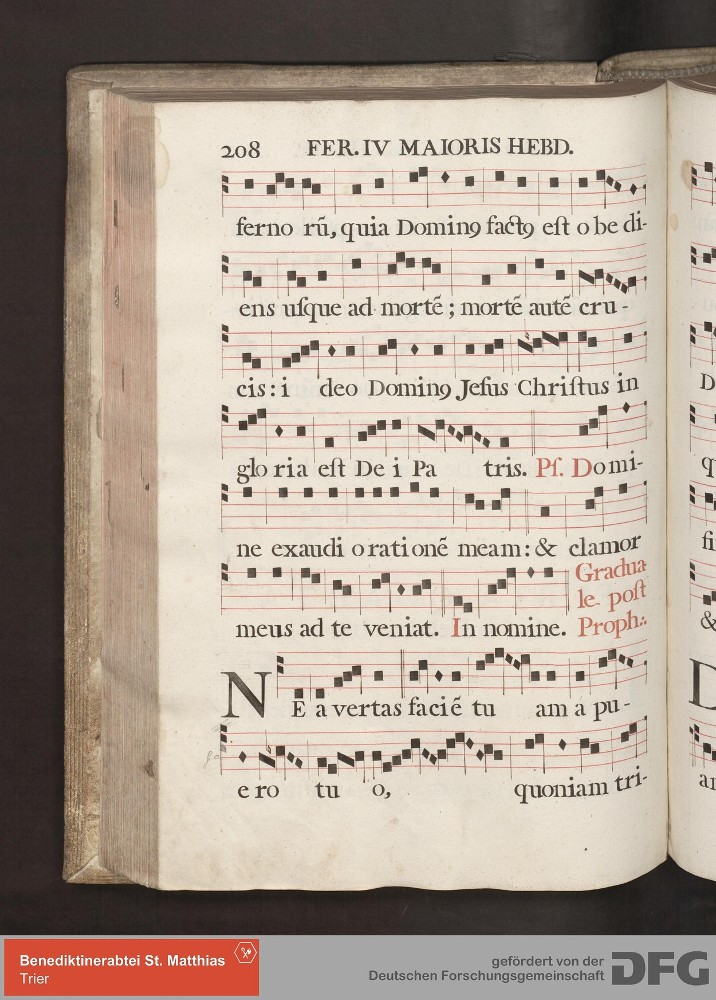 208 FER. IV MAIORIS HEBD.
ferno rū, quia Dominꝯ factꝯ eſt o be di-
ens uſque ad mortē; mortē autē cru-
cis: i deo Dominꝯ Jeſus Chriſtus in
glo ria eſt De i Pa tris. Pſ. Domi-
ne exaudi o rationē meam: & clamor
meus ad te veniat. In nomine. Gradua-
le poſt
Proph:.
NE a vertas faciē tu am a pu-
e ro tu o, quoniam tri-
Benediktinerabtei St. Matthias
Trier
gefördert von der
Deutschen Forschungsgemeinschaft
DFG